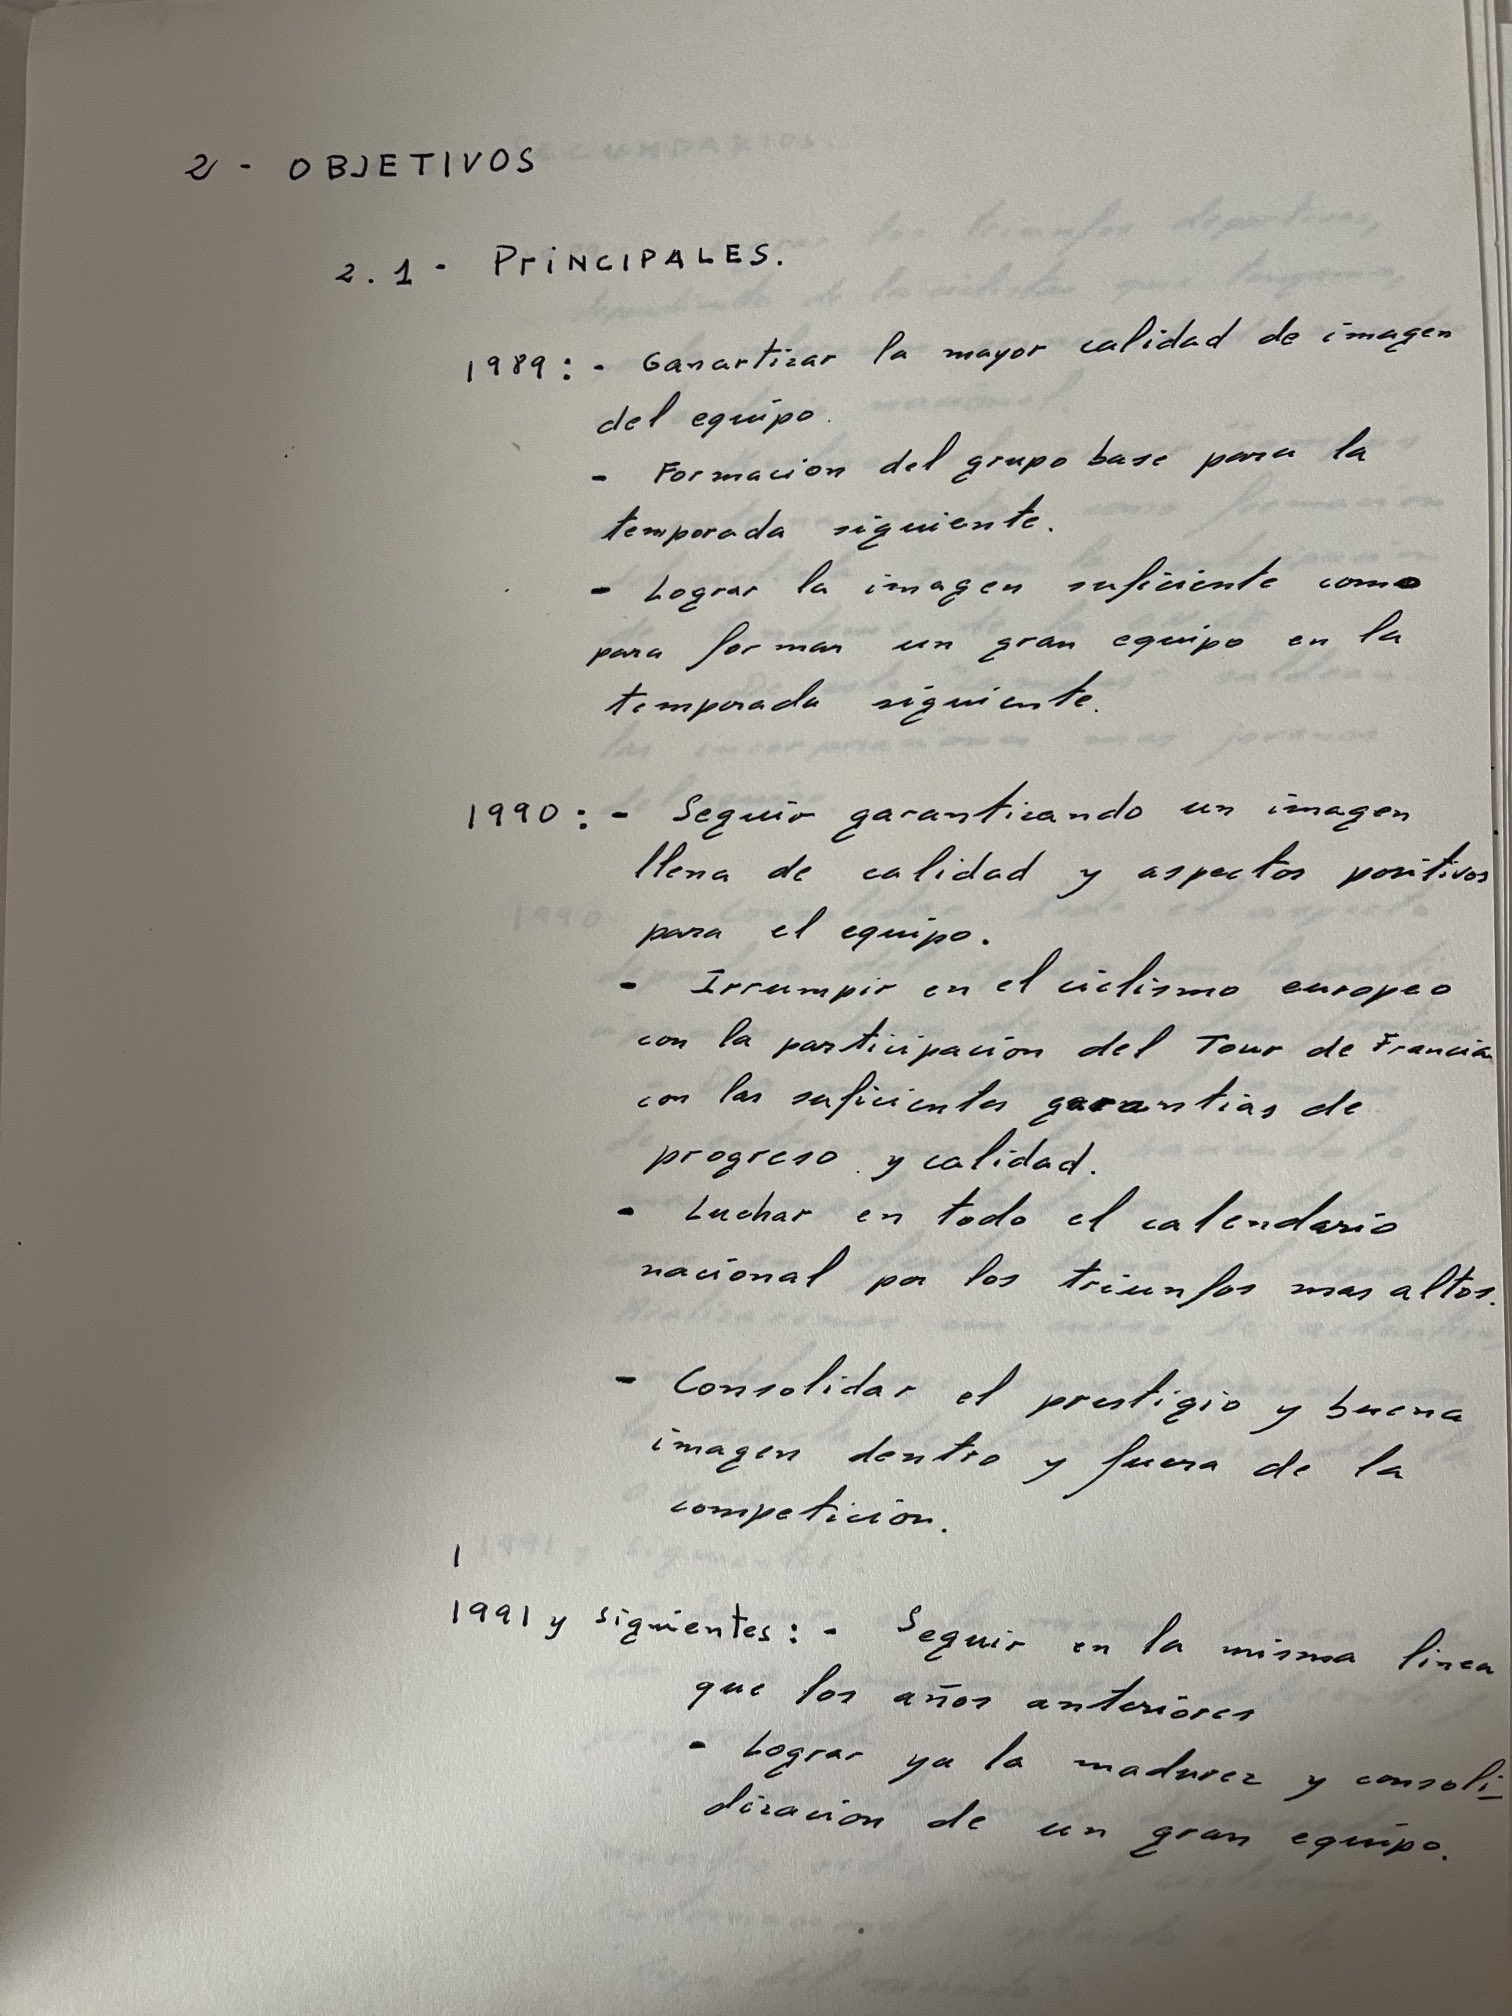 2 - OBJETIVOS
2.1 - PrINCIPALES.
1989: - Ganartizar la mayor calidad de imagen
del equipo.
- Formacion del grupo base para la
temporada siguiente.
- Lograr la imagen suficiente como
para formar un gran equipo en la
temporada siguiente.
1990: - Seguir garantizando un imagen
llena de calidad y aspectos positivos
para el equipo.
- Irrumpir en el ciclismo europeo
con la participación del Tour de Francia
con las suficientes garantias de
progreso y calidad.
- Luchar en todo el calendario
nacional por los triunfos mas altos.
- Consolidar el prestigio y buena
imagen dentro y fuera de la
competición.
1
1991 y siguientes: - Seguir en la misma linea
que los años anteriores
- Lograr ya la madurez y consoli-
dización de un gran equipo.